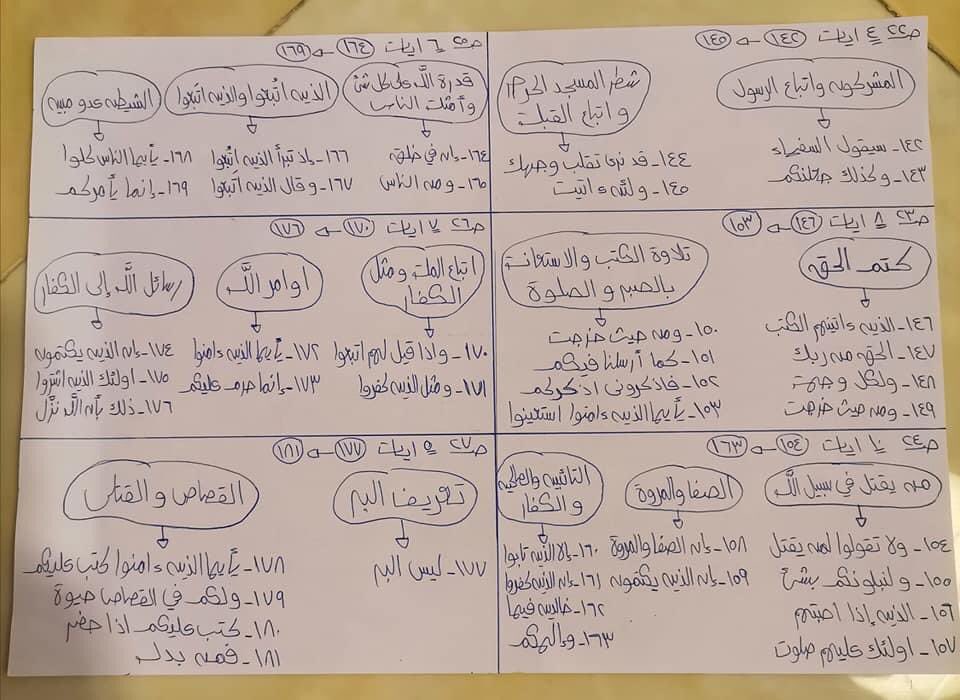 ص٢٢ ٤ ايات ١٤٢ ← ١٤٥
المشركون واتباع الرسول
١٤٢- سيقول السفهاء
١٤٣- وكذلك جعلنكم
شطر المسجد الحرام
واتباع القبلة
١٤٤- قد نرى تقلب وجهك
١٤٥- ولئن ءاتيت
ص٢٣ ٨ ايات ١٤٦ ← ١٥٣
كتم الحق
١٤٦- الذين ءاتينهم الكتب
١٤٧- الحق من ربك
١٤٨- ولكل وجهة
١٤٩- ومن حيث خرجت
تلاوة الكتب والاستعانة
بالصبر والصلوة
١٥٠- ومن حيث خرجت
١٥١- كما أرسلنا فيكم
١٥٢- فاذكرونى اذكركم
١٥٣- يأيها الذين ءامنوا استعينوا
ص٢٤ ١٠ ايات ١٥٤ ← ١٦٣
من يقتل في سبيل الله
١٥٤- ولا تقولوا لمن يقتل
١٥٥- ولنبلونكم بشئ
١٥٦- الذين إذا اصبتهم
١٥٧- اولئك عليهم صلوت
الصفا والمروة
١٥٨- إن الصفا والمروة
١٥٩- إن الذين يكتمون
التائبين
والكفار
١٦٠- إلا الذين تابوا
١٦١- إن الذين كفروا
١٦٢- خالدين فيها
١٦٣- وإلهكم
ص٢٥ ٦ ايات ١٦٤ ← ١٦٩
قدرة الله على كل شئ
وأصناف الناس
١٦٤- إن في خلق
١٦٥- ومن الناس
الذين اتُبعوا والذين اتَبعوا
١٦٦- إذ تبرأ الذين اتُبعوا
١٦٧- وقال الذين اتَبعوا
الشيطن عدو مبين
١٦٨- يأيها الناس كلوا
١٦٩- إنما يأمركم
ص٢٦ ٧ ايات ١٧٠ ← ١٧٦
اتباع الملة ومثل
الكفار
١٧٠- واذا قيل لهم اتبعوا
١٧١- ومثل الذين كفروا
اوامر الله
١٧٢- يأيها الذين ءامنوا
١٧٣- إنما حرم عليكم
رسائل الله إلى الكفار
١٧٤- إن الذين يكتمون
١٧٥- اولئك الذين اشتروا
١٧٦- ذلك بأن الله نزّل
ص٢٧ ٥ ايات ١٧٧ ← ١٨١
تعريف البر
١٧٧- ليس البر
القصاص والقتل
١٧٨- يأيها الذين ءامنوا كتب عليكم
١٧٩- ولكم في القصاص حيوة
١٨٠- كتب عليكم اذا حضر
١٨١- فمن بدله